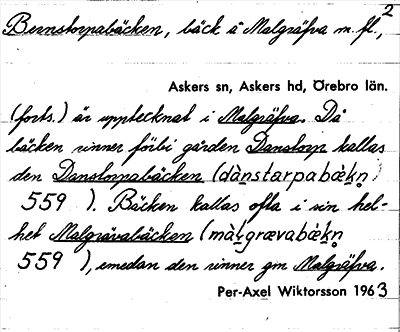 2
Bernstorpabäcken, bäck å Malgräfva m. fl.,
Askers sn, Askers hd, Örebro län.
(forts.) är upptecknat i Malgräfva. Då
bäcken rinner förbi gården Danstorp kallas
den Danstorpabäcken (dànstarpabæ̀kn̥
559 ). Bäcken kallas ofta i sin hel-
het Malgrävabäcken (màlgrævabæ̀kn̥
559 ), emedan den rinner gm Malgräfva.
Per-Axel Wiktorsson 1963